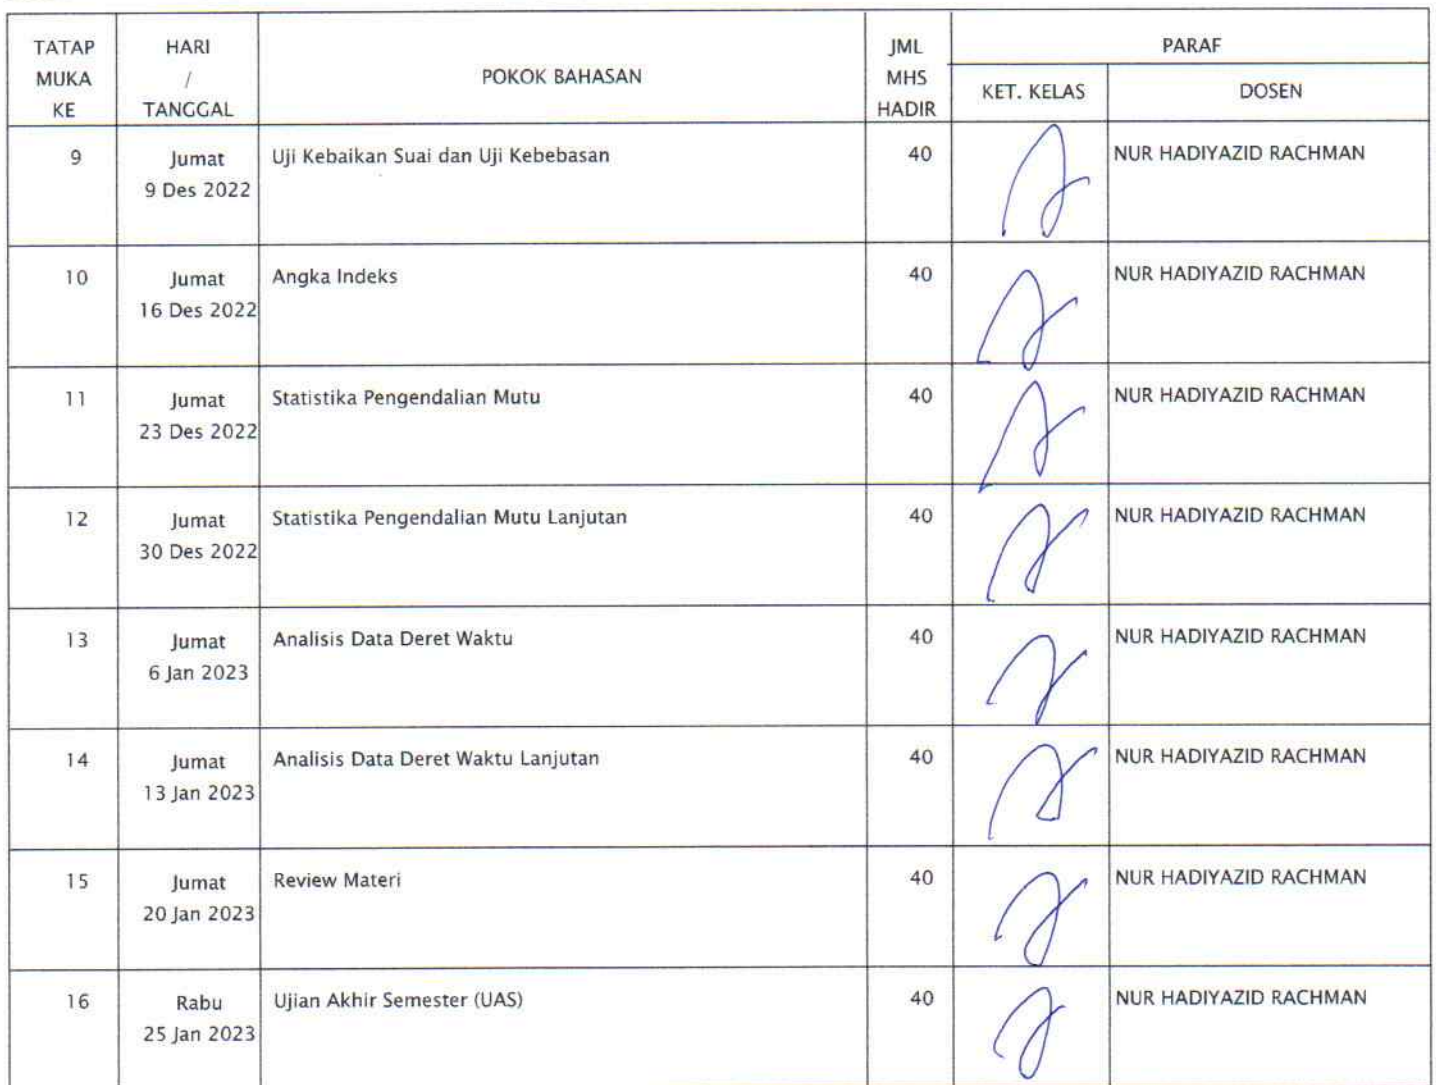 TATAP MUKA KE
HARI / TANGGAL
POKOK BAHASAN
JML MHS HADIR
PARAF
KET. KELAS
DOSEN
9
Jumat
9 Des 2022
Uji Kebaikan Suai dan Uji Kebebasan
40
NUR HADIYAZID RACHMAN
10
Jumat
16 Des 2022
Angka Indeks
40
NUR HADIYAZID RACHMAN
11
Jumat
23 Des 2022
Statistika Pengendalian Mutu
40
NUR HADIYAZID RACHMAN
12
Jumat
30 Des 2022
Statistika Pengendalian Mutu Lanjutan
40
NUR HADIYAZID RACHMAN
13
Jumat
6 Jan 2023
Analisis Data Deret Waktu
40
NUR HADIYAZID RACHMAN
14
Jumat
13 Jan 2023
Analisis Data Deret Waktu Lanjutan
40
NUR HADIYAZID RACHMAN
15
Jumat
20 Jan 2023
Review Materi
40
NUR HADIYAZID RACHMAN
16
Rabu
25 Jan 2023
Ujian Akhir Semester (UAS)
40
NUR HADIYAZID RACHMAN